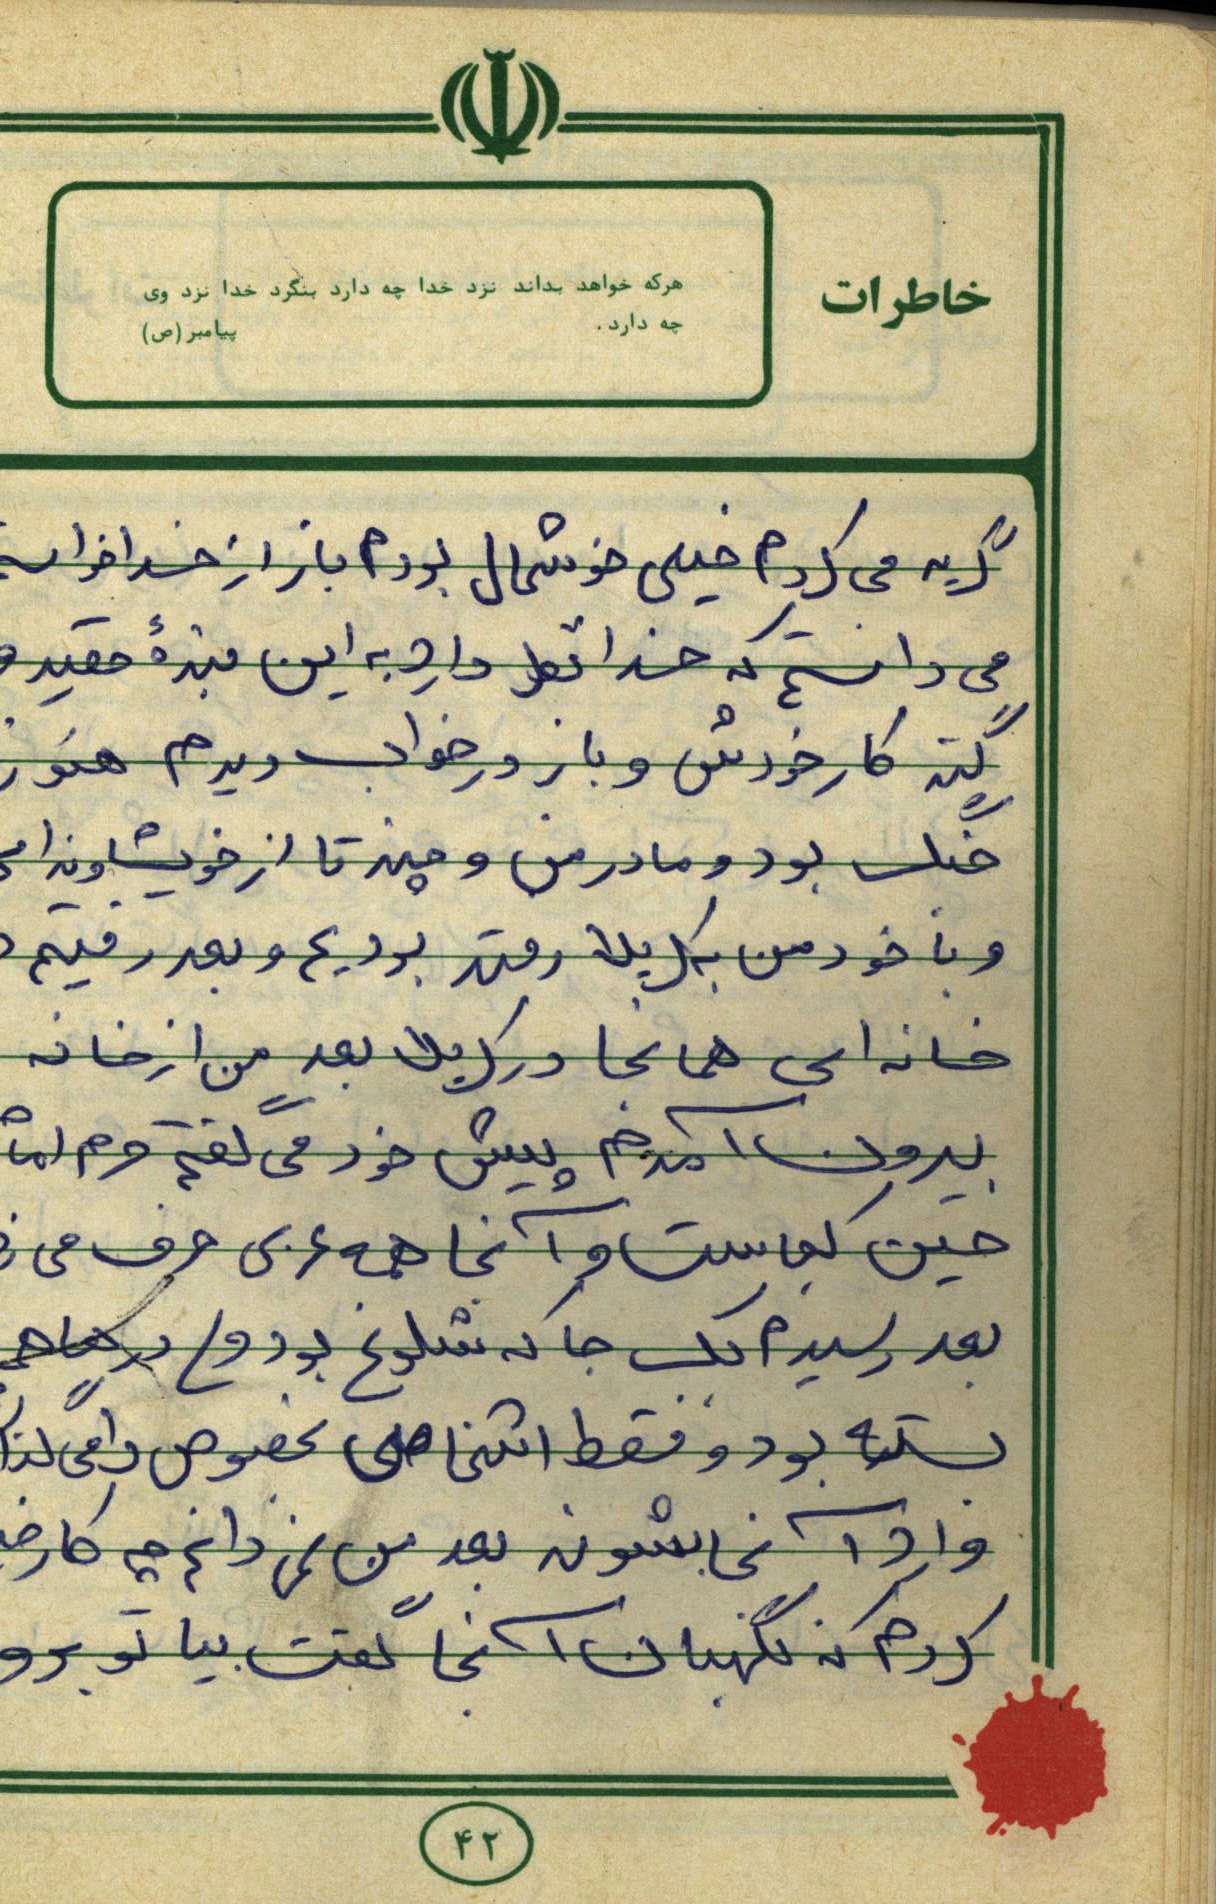 خاطرات
هرکه خواهد بداند نزد خدا چه دارد بنگرد خدا نزد وی
چه دارد. پیامبر(ص)
گریه می کردم خیلی خوشحال بودم باز از خدا خواسته
می دانستم که خدا لطف دارد به این بندهٔ حقیر و
کار خودش و باز در خواب دیدم هنوز
جنگ بود و مادر من و چند تا از خویشاوندان
و با خود من به کربلا رفته بودیم و بعد رفتیم
خانه ای همانجا در کربلا بعد من از خانه
بیرون آمدم پیش خود می گفتم حرم امام
حسین کجاست و آنجا همه عربی حرف می
بعد رسیدم یک جا که شلوغ بود و درها هم
بسته بود و فقط اشخاصی مخصوص را می
وارد آنجا بشوند بعد من نمی دانم چه کار
کردم که نگهبان آنجا گفت بیا تو برو
۴۲